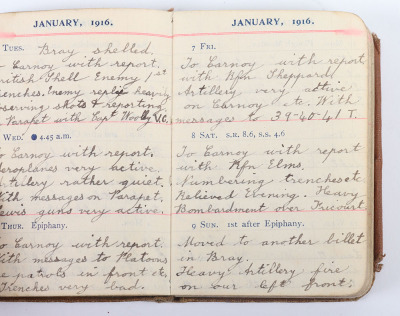 JANUARY, 1916.
TUES. Bray shelled.
Carnoy with report.
British Shell Enemy 1st
Trenches. Enemy replie heavily
observing shots & reporting
Parapet with Capt Woolly V.C.
WED. 4.45 a.m.
To Carnoy with report.
Aeroplanes very active.
Artillery rather quiet.
With messages on Parapet.
Lewis guns very active.
THUR. Epiphany.
To Carnoy with report.
With messages to Platoons
patrols in front etc.
Trenches very bad.
JANUARY, 1916.
7 FRI.
To Carnoy with report
with Rfn Sheppard
Artillery very active
on Carnoy etc. With
messages to 39-40-41 T.
8 SAT. S.R. 8.6, S.S. 4.6
To Carnoy with report
with Rfn Elms.
Numbering trenches etc
Relieved Evening. Heavy
Bombardment over Fricourt.
9 SUN. 1ST after Epiphany.
Moved to another billet
in Bray.
Heavy Artillery fire
on our left front.